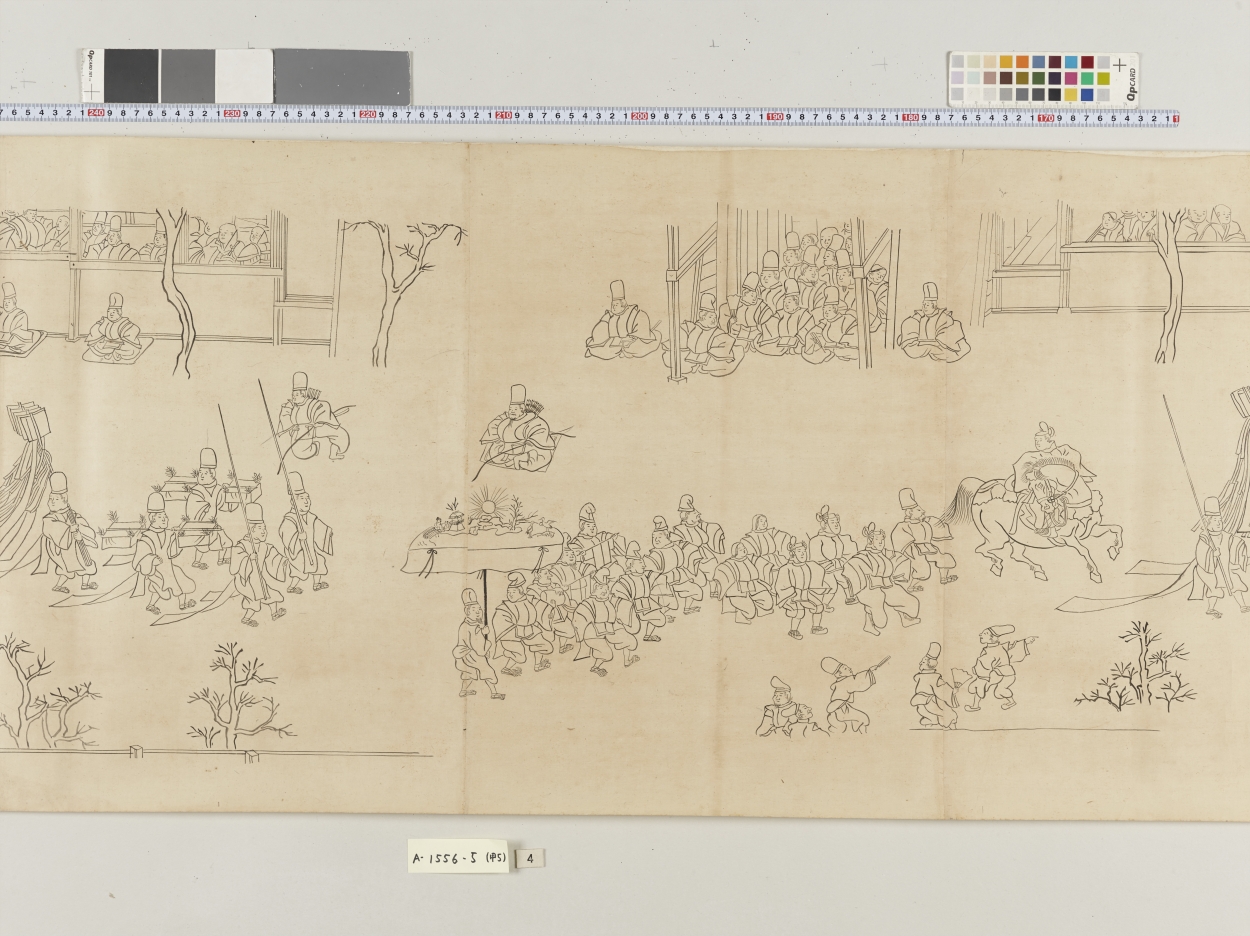 QPCARD
QPCARD
7 6 5 4 3 2 1 240 9 8 7 6 5 4 3 2 1 230 9 8 7 6 5 4 3 2 1 220 9 8 7 6 5 4 3 2 1 210 9 8 7 6 5 4 3 2 1 200 9 8 7 6 5 4 3 2 1 190 9 8 7 6 5 4 3 2 1 180 9 8 7 6 5 4 3 2 1 170 9 8 7 6 5 4 3 2 1 1
A-1556-5
4